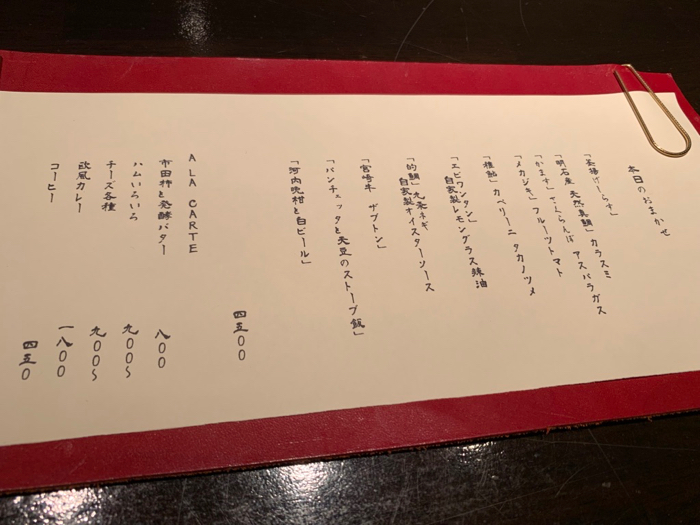 本日のおまかせ
カラスミ
「明石産 天然真鯛」 アスパラガス
「かます」 さくらんぼ
「メカジキ」 フルーツトマト
「稚鮎」 カペリーニ タカノツメ
「エビワンタン」
自家製レモングラス辣油
「的鯛」 九条ネギ
自家製オイスターソース
「宮崎牛 ザブトン」
「パンチェッタと天豆のストーブ飯」
「河内晩柑と白ビール」
四五〇〇
ALA CARTE
市田柿と発酵バター 八〇〇
ハムいろいろ 九〇〇〜
チーズ各種 九〇〇〜
欧風カレー 一八〇〇
コーヒー 四五〇